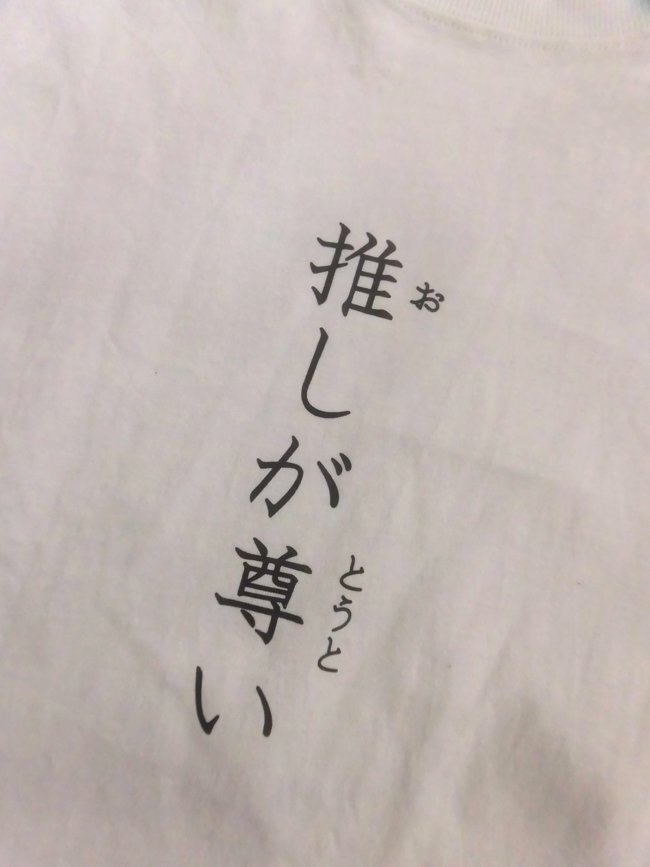 推しが尊い
お
とうと